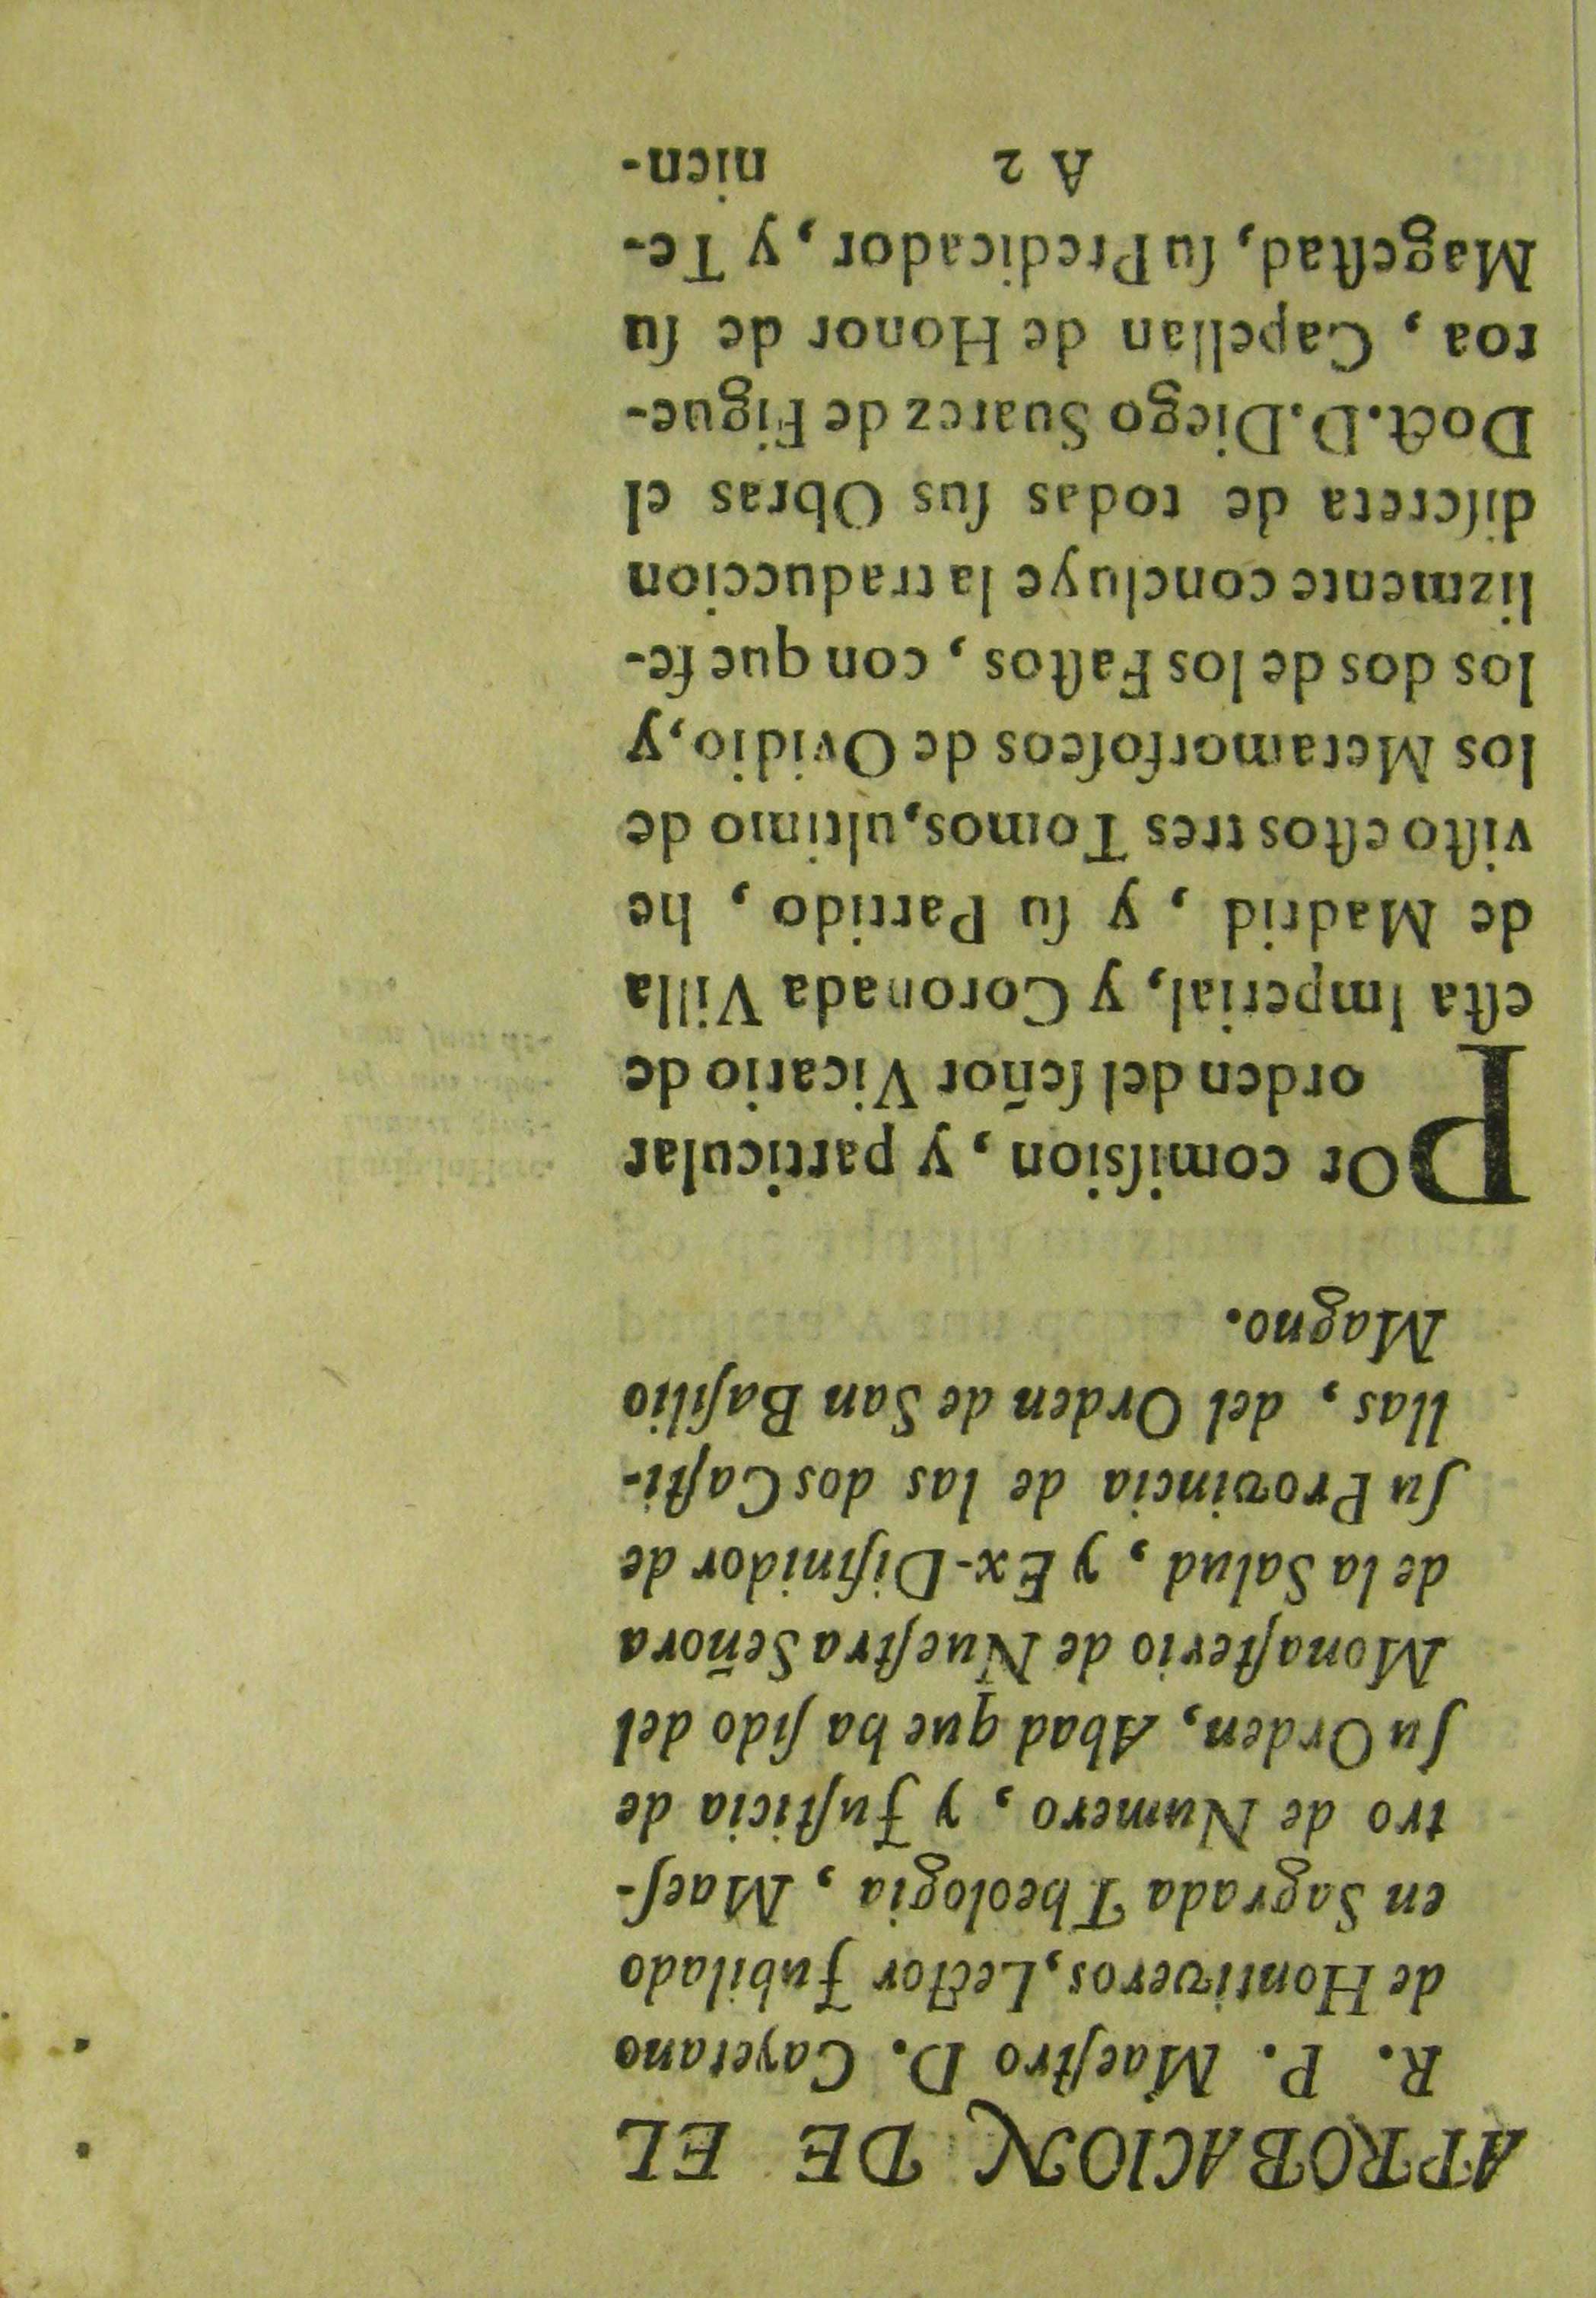 APROBACION DE EL
R. P. Maeſtro D. Cayetano
de Hontiveros, Lector Jubilado
en Sagrada Theologia, Maeſ-
tro de Numero, y Juſticia de
ſu Orden, Abad que ha ſido del
Monaſterio de Nueſtra Señora
de la Salud, y Ex-Difinidor de
ſu Provincia de las dos Caſti-
llas, del Orden de San Baſilio
Magno.
POr comiſsion, y particular
orden del ſeñor Vicario de
eſta Imperial, y Coronada Villa
de Madrid, y ſu Partido, he
viſto eſtos tres Tomos, ultimo de
los Metamorfoſeos de Ovidio, y
los dos de los Faſtos, con que fe-
lizmente concluye la traduccion
diſcreta de todas ſus Obras el
Doct. D. Diego Suarez de Figue-
roa, Capellan de Honor de ſu
Mageſtad, ſu Predicador, y Te-
A 2 nien-